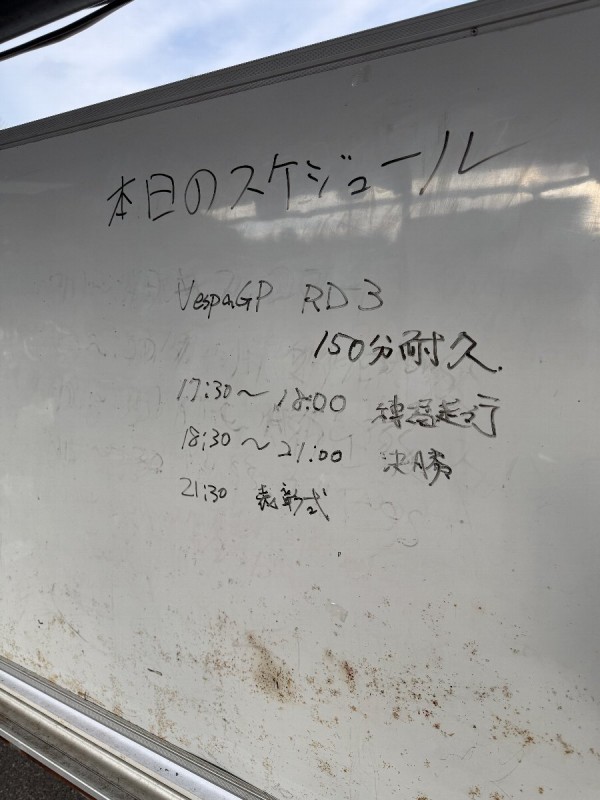 本日のスケジュール
VespaGP RD-3
150分耐久.
17:30～18:00
18:30～21:00 決勝
21:30 表彰式